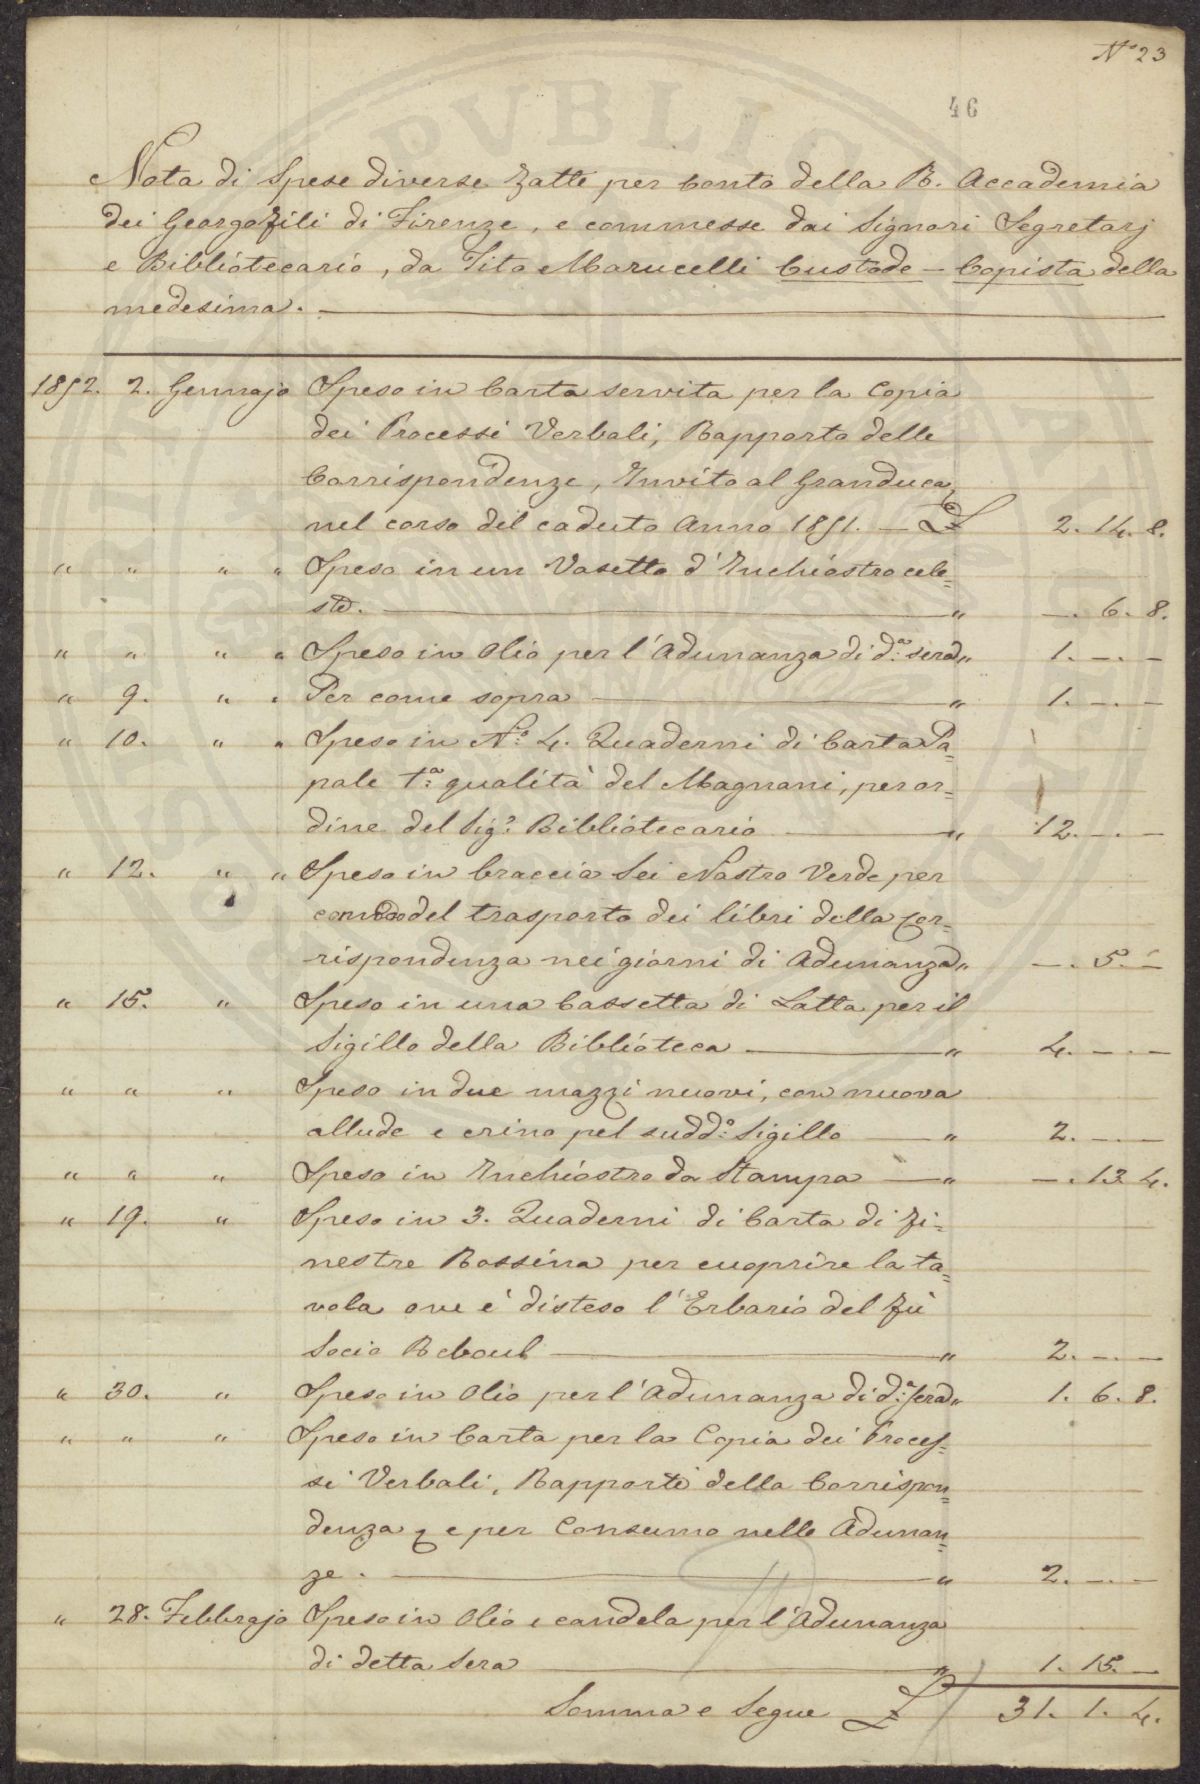 N° 23
46
PVBLIC
Nota di Spese diverse fatte per Conto della R. Accademia
dei Georgofili di Firenze, e commesse dai Signori Segretarj
e Bibliotecario, da Tito Marucelli Custode - Copista della
medesima.
1852. 2. Gennajo Speso in Carta servita per la Copia
dei Processi Verbali, Rapporto delle
Corrispondenze, Invito al Granduca,
nel corso del caduto Anno 1851. — £ 2. 14. 8.
" " " " Speso in un Vasetto d'Inchiostro cele=
ste. — " —. 6. 8.
" " " " Speso in Olio per l'Adunanza di d:ª sera " 1. —. —
" 9. " " Per come sopra — " 1. —. —
" 10. " " Speso in N:° 4. Quaderni di Carta Pa=
pale 1:ª qualità del Magnani, per or=
dine del Sig:r Bibliotecario — " 12. —. —
" 12. " " Speso in braccia Sei Nastro Verde per
comodo del trasporto dei libri della Cor=
rispondenza nei giorni di Adunanza " —. 5. —
" 15. " Speso in una Cassetta di Latta per il
Sigillo della Biblioteca — " 4. —. —
" " " Speso in due mazzi nuovi, con nuova
allude e crino pel sudd:° Sigillo — " 2. —. —
" " " Speso in Inchiostro da Stampa — " —. 13. 4.
" 19. " Speso in 3. Quaderni di Carta di Fi=
nestre Rossina per cuoprire la ta=
vola ove è disteso l'Erbario del fù
Socio Reboul — " 2. —. —
" 30. " Speso in Olio per l'Adunanza di d:ª Sera " 1. 6. 8.
" " " Speso in Carta per la Copia dei Proces=
si Verbali, Rapporti della Corrispon=
denza, e per Consumo nelle Adunan=
ze. — " 2. —. —
" 28. Febbrajo Speso in Olio e candela per l'Adunanza
di detta Sera — " 1. 15. —
Somma e Segue £ 31. 1. 4.